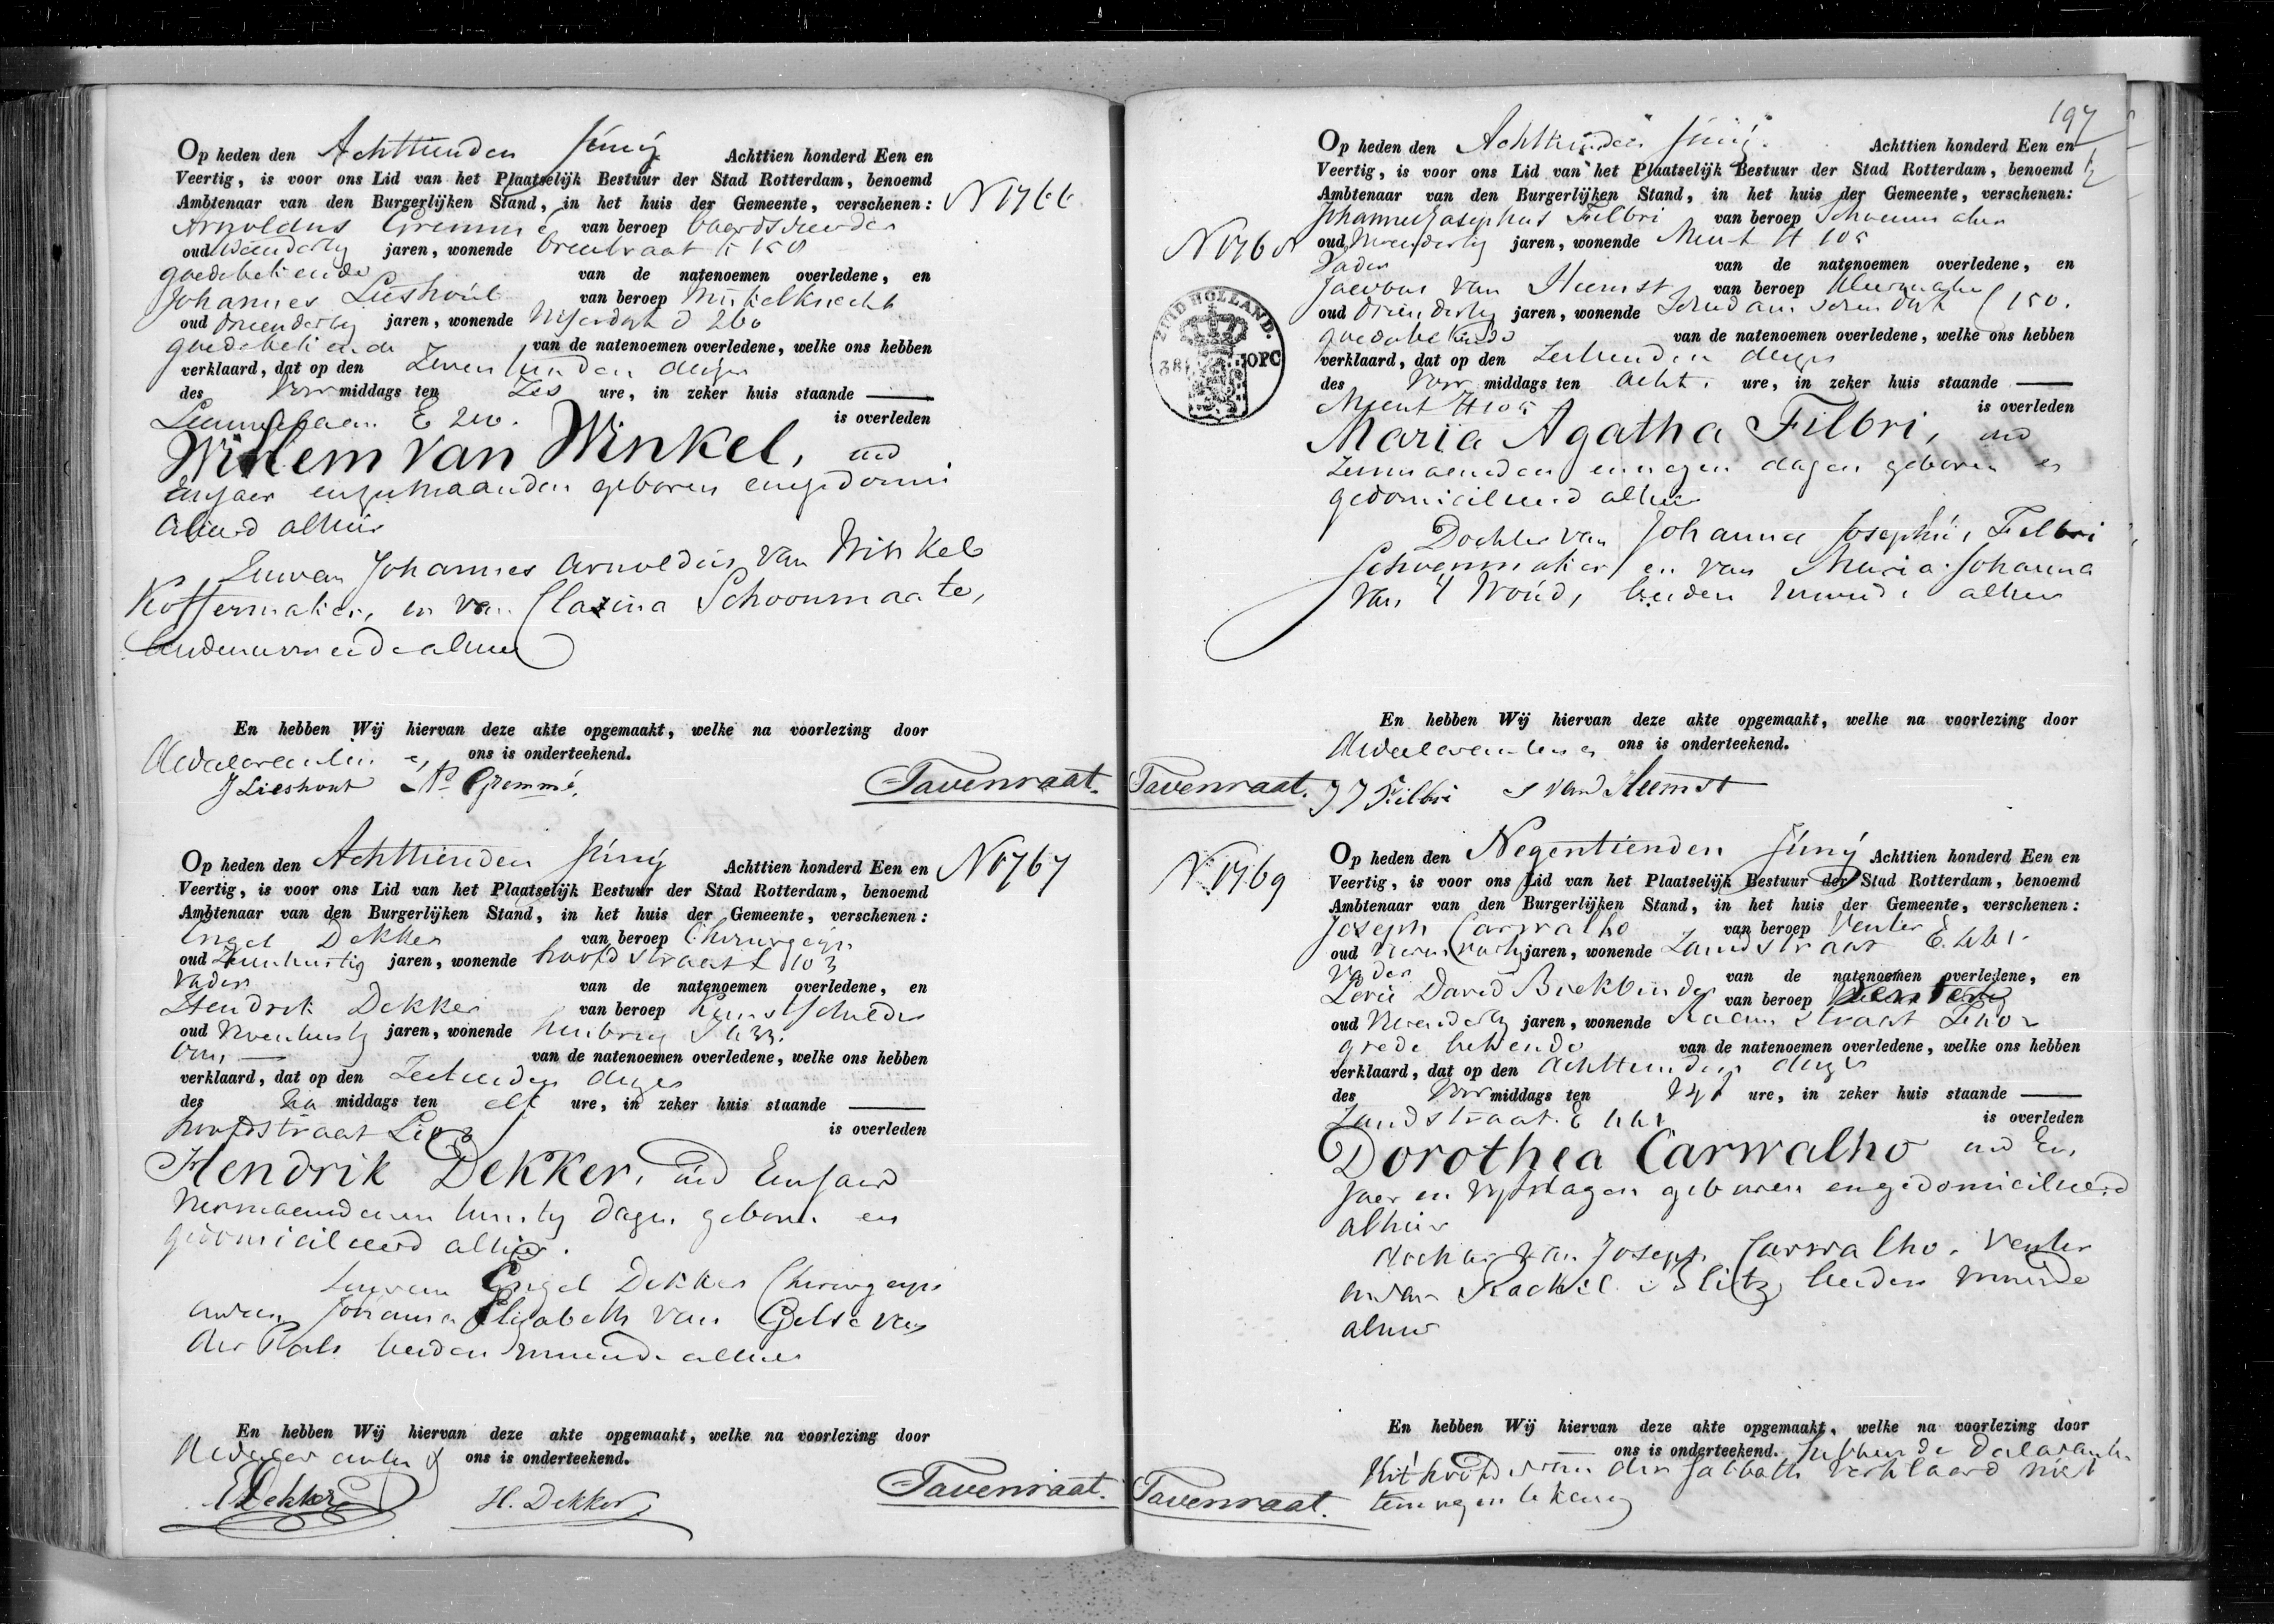 Op heden den Achttienden Junij Achttien honderd Een en
Veertig, is voor ons Lid van het Plaatselijk Bestuur der Stad Rotterdam, benoemd
Ambtenaar van den Burgerlijken Stand, in het huis der Gemeente, verschenen: N 1766
Arnoldus Gremmé van beroep
oud jaren, wonende
goedebekende van de natenoemen overledene, en
Johannes Lieshout van beroep Winkelknecht
oud drieendertig jaren, wonende D 260
goedebekende van de natenoemen overledene, welke ons hebben
verklaard, dat op den Zeventienden dezer
des Voor middags ten Zes ure, in zeker huis staande
E is overleden
Willem van Winkel, oud
Eenjaar en maanden geboren engedomi
cilieerd alhier
Zoon van Johannes Arnoldus van Winkel
Koffermaker, en van Clasina Schoonmaate,
beiden wonende alhier
En hebben Wij hiervan deze akte opgemaakt, welke na voorlezing door
de declaranten en ons is onderteekend.
J Lieshout A. Gremmé. Tavenraat.
Op heden den Achttienden Junij Achttien honderd Een en N 1767
Veertig, is voor ons Lid van het Plaatselijk Bestuur der Stad Rotterdam, benoemd
Ambtenaar van den Burgerlijken Stand, in het huis der Gemeente, verschenen:
Engel Dekker van beroep Chirurgijn
oud jaren, wonende hoofdstraat L 103
Vader van de natenoemen overledene, en
Hendrik Dekker van beroep Kunstschilder
oud jaren, wonende
Oom van de natenoemen overledene, welke ons hebben
verklaard, dat op den Zestienden dezer
des Na middags ten elf ure, in zeker huis staande
hoofdstraat L 103 is overleden
Hendrik Dekker, oud Eenjaar
dagen geboren en
gedomicilieerd alhier.
Zoon van Engel Dekker Chirurgijn
en van Johanna Elizabeth van Gelse van
der Plats beiden wonende alhier
En hebben Wij hiervan deze akte opgemaakt, welke na voorlezing door
de declaranten & ons is onderteekend.
E Dekker H. Dekker Tavenraat.
197
Op heden den Achttienden Junij Achttien honderd Een en
Veertig, is voor ons Lid van het Plaatselijk Bestuur der Stad Rotterdam, benoemd
Ambtenaar van den Burgerlijken Stand, in het huis der Gemeente, verschenen:
Johannes Josephus Filbri van beroep Schoenmaker
N 1768 oud jaren, wonende Meent H 105
Vader van de natenoemen overledene, en
Jacobus van Heemst van beroep Kleermaker
oud drieendertig jaren, wonende 150.
goedebekende van de natenoemen overledene, welke ons hebben
verklaard, dat op den Zestienden dezer
des Voor middags ten Acht ure, in zeker huis staande
Meent H 105 is overleden
ZUID HOLLAND.
38 OPC
Maria Agatha Filbri, oud
maanden en negen dagen geboren en
gedomicilieerd alhier
Dochter van Johannes Josephus Filbri
Schoenmaker en van Maria Johanna
van 't Woud, beiden wonende alhier
En hebben Wij hiervan deze akte opgemaakt, welke na voorlezing door
de declaranten en ons is onderteekend.
Tavenraat. J J Filbri J van Heemst
Op heden den Negentienden Junij Achttien honderd Een en
N 1769 Veertig, is voor ons Lid van het Plaatselijk Bestuur der Stad Rotterdam, benoemd
Ambtenaar van den Burgerlijken Stand, in het huis der Gemeente, verschenen:
Joseph Carwalho van beroep Venter
oud jaren, wonende Zandstraat E 441.
Vader van de natenoemen overledene, en
Levie David Boekbinder van beroep Venter
oud jaren, wonende Raamstraat
goede bekende van de natenoemen overledene, welke ons hebben
verklaard, dat op den Achttienden dezer
des Voor middags ten Vijf ure, in zeker huis staande
Zandstraat E 441 is overleden
Dorothea Carwalho oud Een
Jaar en Vijf dagen geboren engedomicilieerd
alhier
dochter van Joseph Carwalho, Venter
en van Rachel Blitz, beiden wonende
alhier
En hebben Wij hiervan deze akte opgemaakt, welke na voorlezing door
ons is onderteekend. hebbende declaranten
uit hoofde van den Sabbath verklaard niet
te mogen tekenen
Tavenraat.